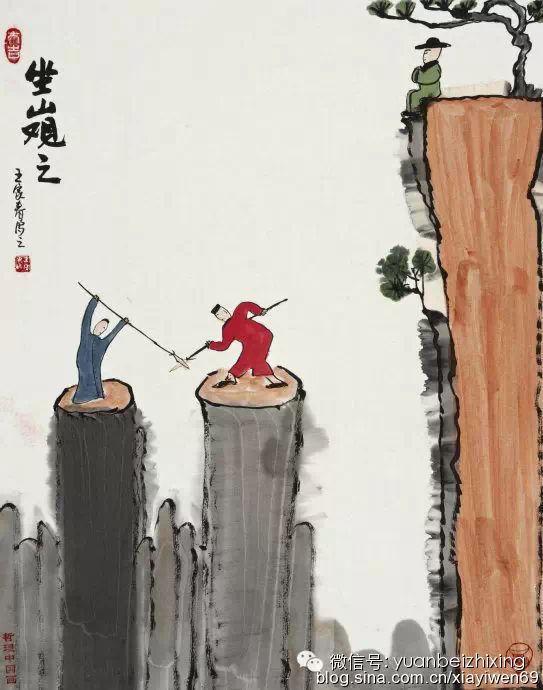 坐山觀之
王家春写之
哲理中国画
微信号: yuanbeizhixing
blog.sina.com.cn/xiayiwen69